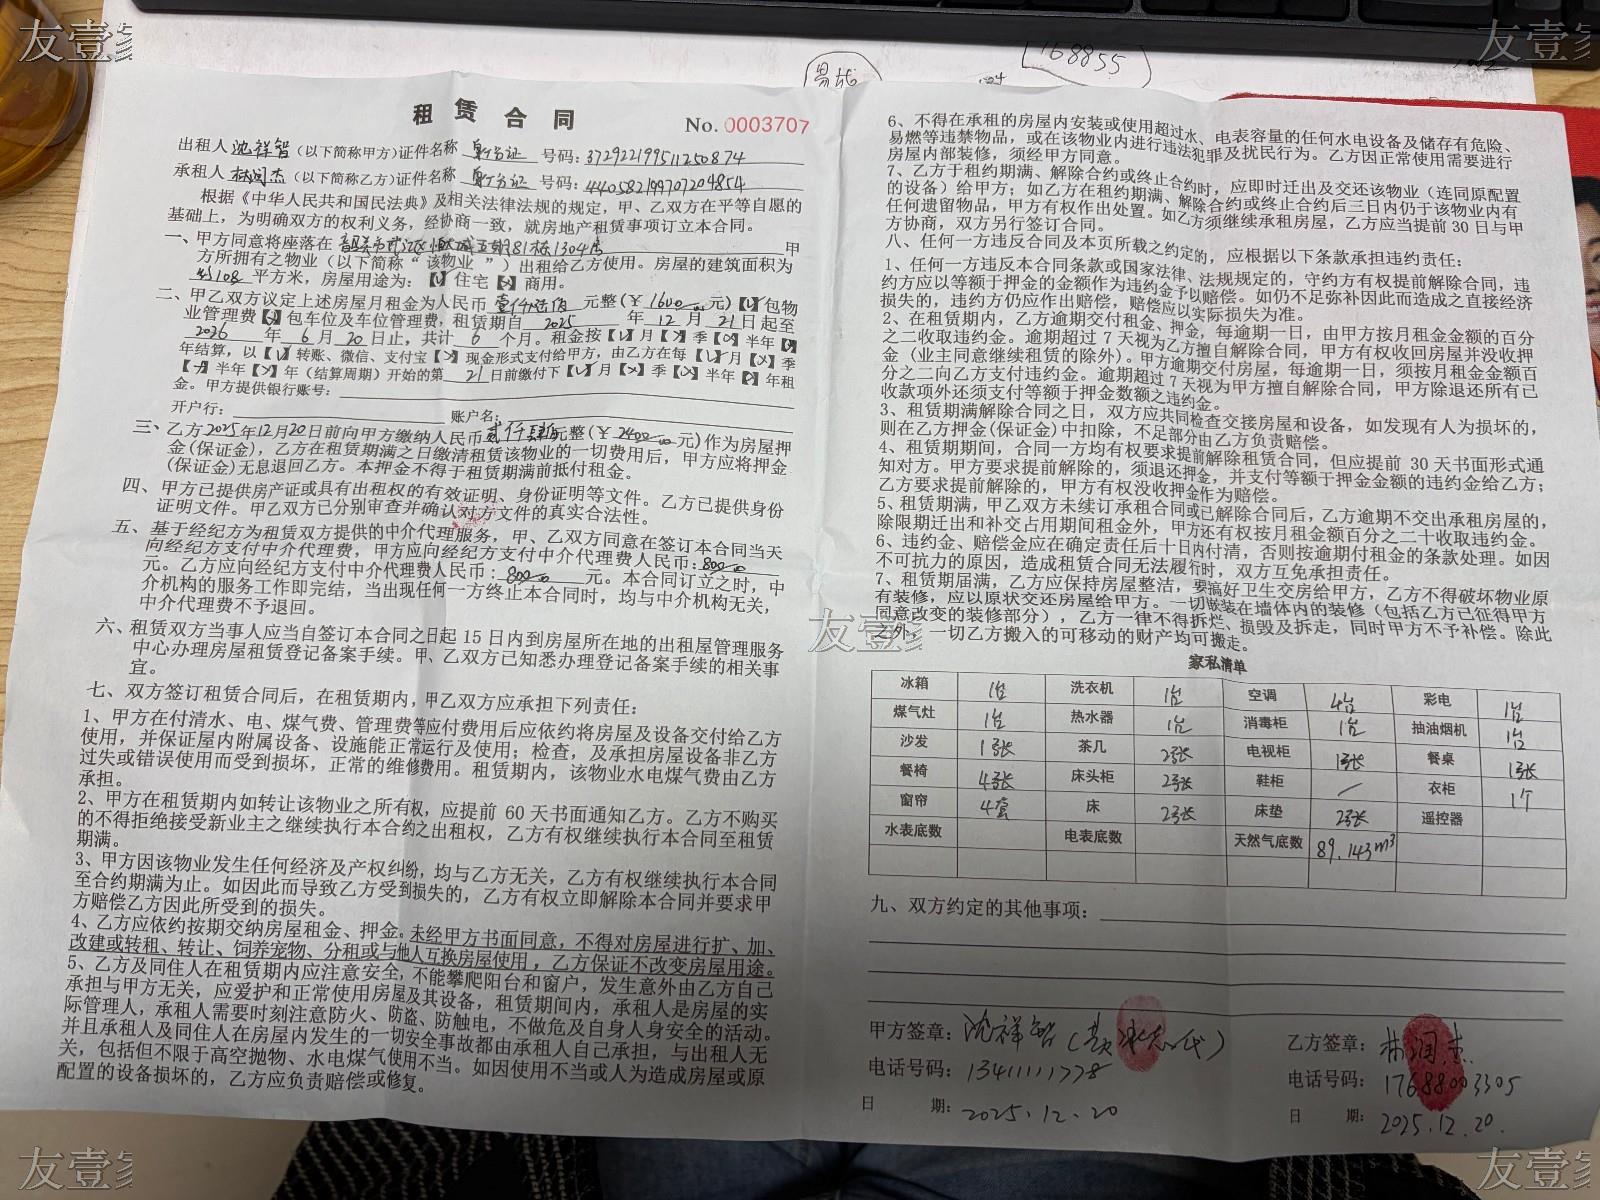 友壹家
友壹家
168855
租赁合同
No. 0003707
出租人 沈祥智 (以下简称甲方)证件名称 身份证 号码: 372922199511250874
承租人 林润杰 (以下简称乙方)证件名称 身份证 号码: 440582199707204854
根据《中华人民共和国民法典》及相关法律法规的规定，甲、乙双方在平等自愿的
基础上，为明确双方的权利义务，经协商一致，就房地产租赁事项订立本合同。
一、甲方同意将座落在 五期81栋1304房 甲
方所拥有之物业（以下简称“该物业”）出租给乙方使用。房屋的建筑面积为
约108 平方米，房屋用途为：【√】住宅【×】商用。
二、甲乙双方议定上述房屋月租金为人民币 壹仟陆佰 元整(￥ 1600.00 元)【√】包物
业管理费【×】包车位及车位管理费，租赁期自 2025 年 12 月 21 日起至
2026 年 6 月 20 日止，共计 6 个月。租金按【√】月【×】季【×】半年【×】
年结算，以【√】转账、微信、支付宝【×】现金形式支付给甲方，由乙方在每【√】月【×】季
【×】半年【×】年（结算周期）开始的第 21 日前缴付下【√】月【×】季【×】半年【×】年租
金。甲方提供银行账号：
开户行： 账户名：
三、乙方2025年12月20日前向甲方缴纳人民币 贰仟肆佰 元整(￥ 2400.00 元)作为房屋押
金(保证金)，乙方在租赁期满之日缴清租赁该物业的一切费用后，甲方应将押金
(保证金)无息退回乙方。本押金不得于租赁期满前抵付租金。
四、甲方已提供房产证或具有出租权的有效证明、身份证明等文件。乙方已提供身份
证明文件。甲乙双方已分别审查并确认对方文件的真实合法性。
五、基于经纪方为租赁双方提供的中介代理服务，甲、乙双方同意在签订本合同当天
向经纪方支付中介代理费，甲方应向经纪方支付中介代理费人民币：800.00
元。乙方应向经纪方支付中介代理费人民币：800.00 元。本合同订立之时，中
介机构的服务工作即完结，当出现任何一方终止本合同时，均与中介机构无关，
中介代理费不予退回。
六、租赁双方当事人应当自签订本合同之日起 15 日内到房屋所在地的出租屋管理服务
中心办理房屋租赁登记备案手续。甲、乙双方已知悉办理登记备案手续的相关事
宜。
七、双方签订租赁合同后，在租赁期内，甲乙双方应承担下列责任：
1、甲方在付清水、电、煤气费、管理费等应付费用后应依约将房屋及设备交付给乙方
使用，并保证屋内附属设备、设施能正常运行及使用；检查，及承担房屋设备非乙方
过失或错误使用而受到损坏，正常的维修费用。租赁期内，该物业水电煤气费由乙方
承担。
2、甲方在租赁期内如转让该物业之所有权，应提前 60 天书面通知乙方。乙方不购买
的不得拒绝接受新业主之继续执行本合约之出租权，乙方有权继续执行本合同至租赁
期满。
3、甲方因该物业发生任何经济及产权纠纷，均与乙方无关，乙方有权继续执行本合同
至合约期满为止。如因此而导致乙方受到损失的，乙方有权立即解除本合同并要求甲
方赔偿乙方因此所受到的损失。
4、乙方应依约按期交纳房屋租金、押金。未经甲方书面同意，不得对房屋进行扩、加、
改建或转租、转让、饲养宠物、分租或与他人互换房屋使用，乙方保证不改变房屋用途。
5、乙方及同住人在租赁期内应注意安全，不能攀爬阳台和窗户，发生意外由乙方自己
承担与甲方无关，应爱护和正常使用房屋及其设备，租赁期间内，承租人是房屋的实
际管理人，承租人需要时刻注意防火、防盗、防触电，不做危及自身人身安全的活动。
并且承租人及同住人在房屋内发生的一切安全事故都由承租人自己承担，与出租人无
关，包括但不限于高空抛物、水电煤气使用不当。如因使用不当或人为造成房屋或原
配置的设备损坏的，乙方应负责赔偿或修复。
6、不得在承租的房屋内安装或使用超过水、电表容量的任何水电设备及储存有危险、
易燃等违禁物品，或在该物业内进行违法犯罪及扰民行为。乙方因正常使用需要进行
房屋内部装修，须经甲方同意。
7、乙方于租约期满、解除合约或终止合约时，应即时迁出及交还该物业（连同原配置
的设备）给甲方；如乙方在租约期满、解除合约或终止合约后三日内仍于该物业内有
任何遗留物品，甲方有权作出处置。如乙方须继续承租房屋，乙方应当提前 30 日与甲
方协商，双方另行签订合同。
八、任何一方违反合同及本页所载之约定的，应根据以下条款承担违约责任：
1、任何一方违反本合同条款或国家法律、法规规定的，守约方有权提前解除合同，违
约方应以等额于押金的金额作为违约金予以赔偿。如仍不足弥补因此而造成之直接经济
损失的，违约方仍应作出赔偿，赔偿应以实际损失为准。
2、在租赁期内，乙方逾期交付租金、押金，每逾期一日，由甲方按月租金金额的百分
之二收取违约金。逾期超过 7 天视为乙方擅自解除合同，甲方有权收回房屋并没收押
金（业主同意继续租赁的除外）。甲方逾期交付房屋，每逾期一日，须按月租金金额百
分之二向乙方支付违约金。逾期超过 7 天视为甲方擅自解除合同，甲方除退还所有已
收款项外还须支付等额于押金数额之违约金。
3、租赁期满解除合同之日，双方应共同检查交接房屋和设备，如发现有人为损坏的，
则在乙方押金(保证金)中扣除，不足部分由乙方负责赔偿。
4、租赁期期间，合同一方均有权要求提前解除租赁合同，但应提前 30 天书面形式通
知对方。甲方要求提前解除的，须退还押金，并支付等额于押金金额的违约金给乙方；
乙方要求提前解除的，甲方有权没收押金作为赔偿。
5、租赁期满，甲乙双方未续订承租合同或已解除合同后，乙方逾期不交出承租房屋的，
除限期迁出和补交占用期间租金外，甲方还有权按月租金额百分之二十收取违约金。
6、违约金、赔偿金应在确定责任后十日内付清，否则按逾期付租金的条款处理。如因
不可抗力的原因，造成租赁合同无法履行时，双方互免承担责任。
7、租赁期届满，乙方应保持房屋整洁，要搞好卫生交房给甲方，乙方不得破坏物业原
有装修，应以原状交还房屋给甲方。一切嵌装在墙体内的装修（包括乙方已征得甲方
同意改变的装修部分），乙方一律不得拆烂、损毁及拆走，同时甲方不予补偿。除此
之外，一切乙方搬入的可移动的财产均可搬走。
友壹家
家私清单
冰箱 1台 洗衣机 1台 空调 4台 彩电 1台
煤气灶 1台 热水器 1台 消毒柜 1台 抽油烟机 1台
沙发 1张 茶几 2张 电视柜 1张 餐桌 1张
餐椅 4张 床头柜 2张 鞋柜 / 衣柜 1个
窗帘 4套 床 2张 床垫 2张 遥控器
水表底数 电表底数 天然气底数 89.143m³
九、双方约定的其他事项：
甲方签章：沈祥智
电话号码：13411111778
日 期：2025.12.20
乙方签章：林润杰
电话号码：17688003305
日 期：2025.12.20.
友壹家
友壹家